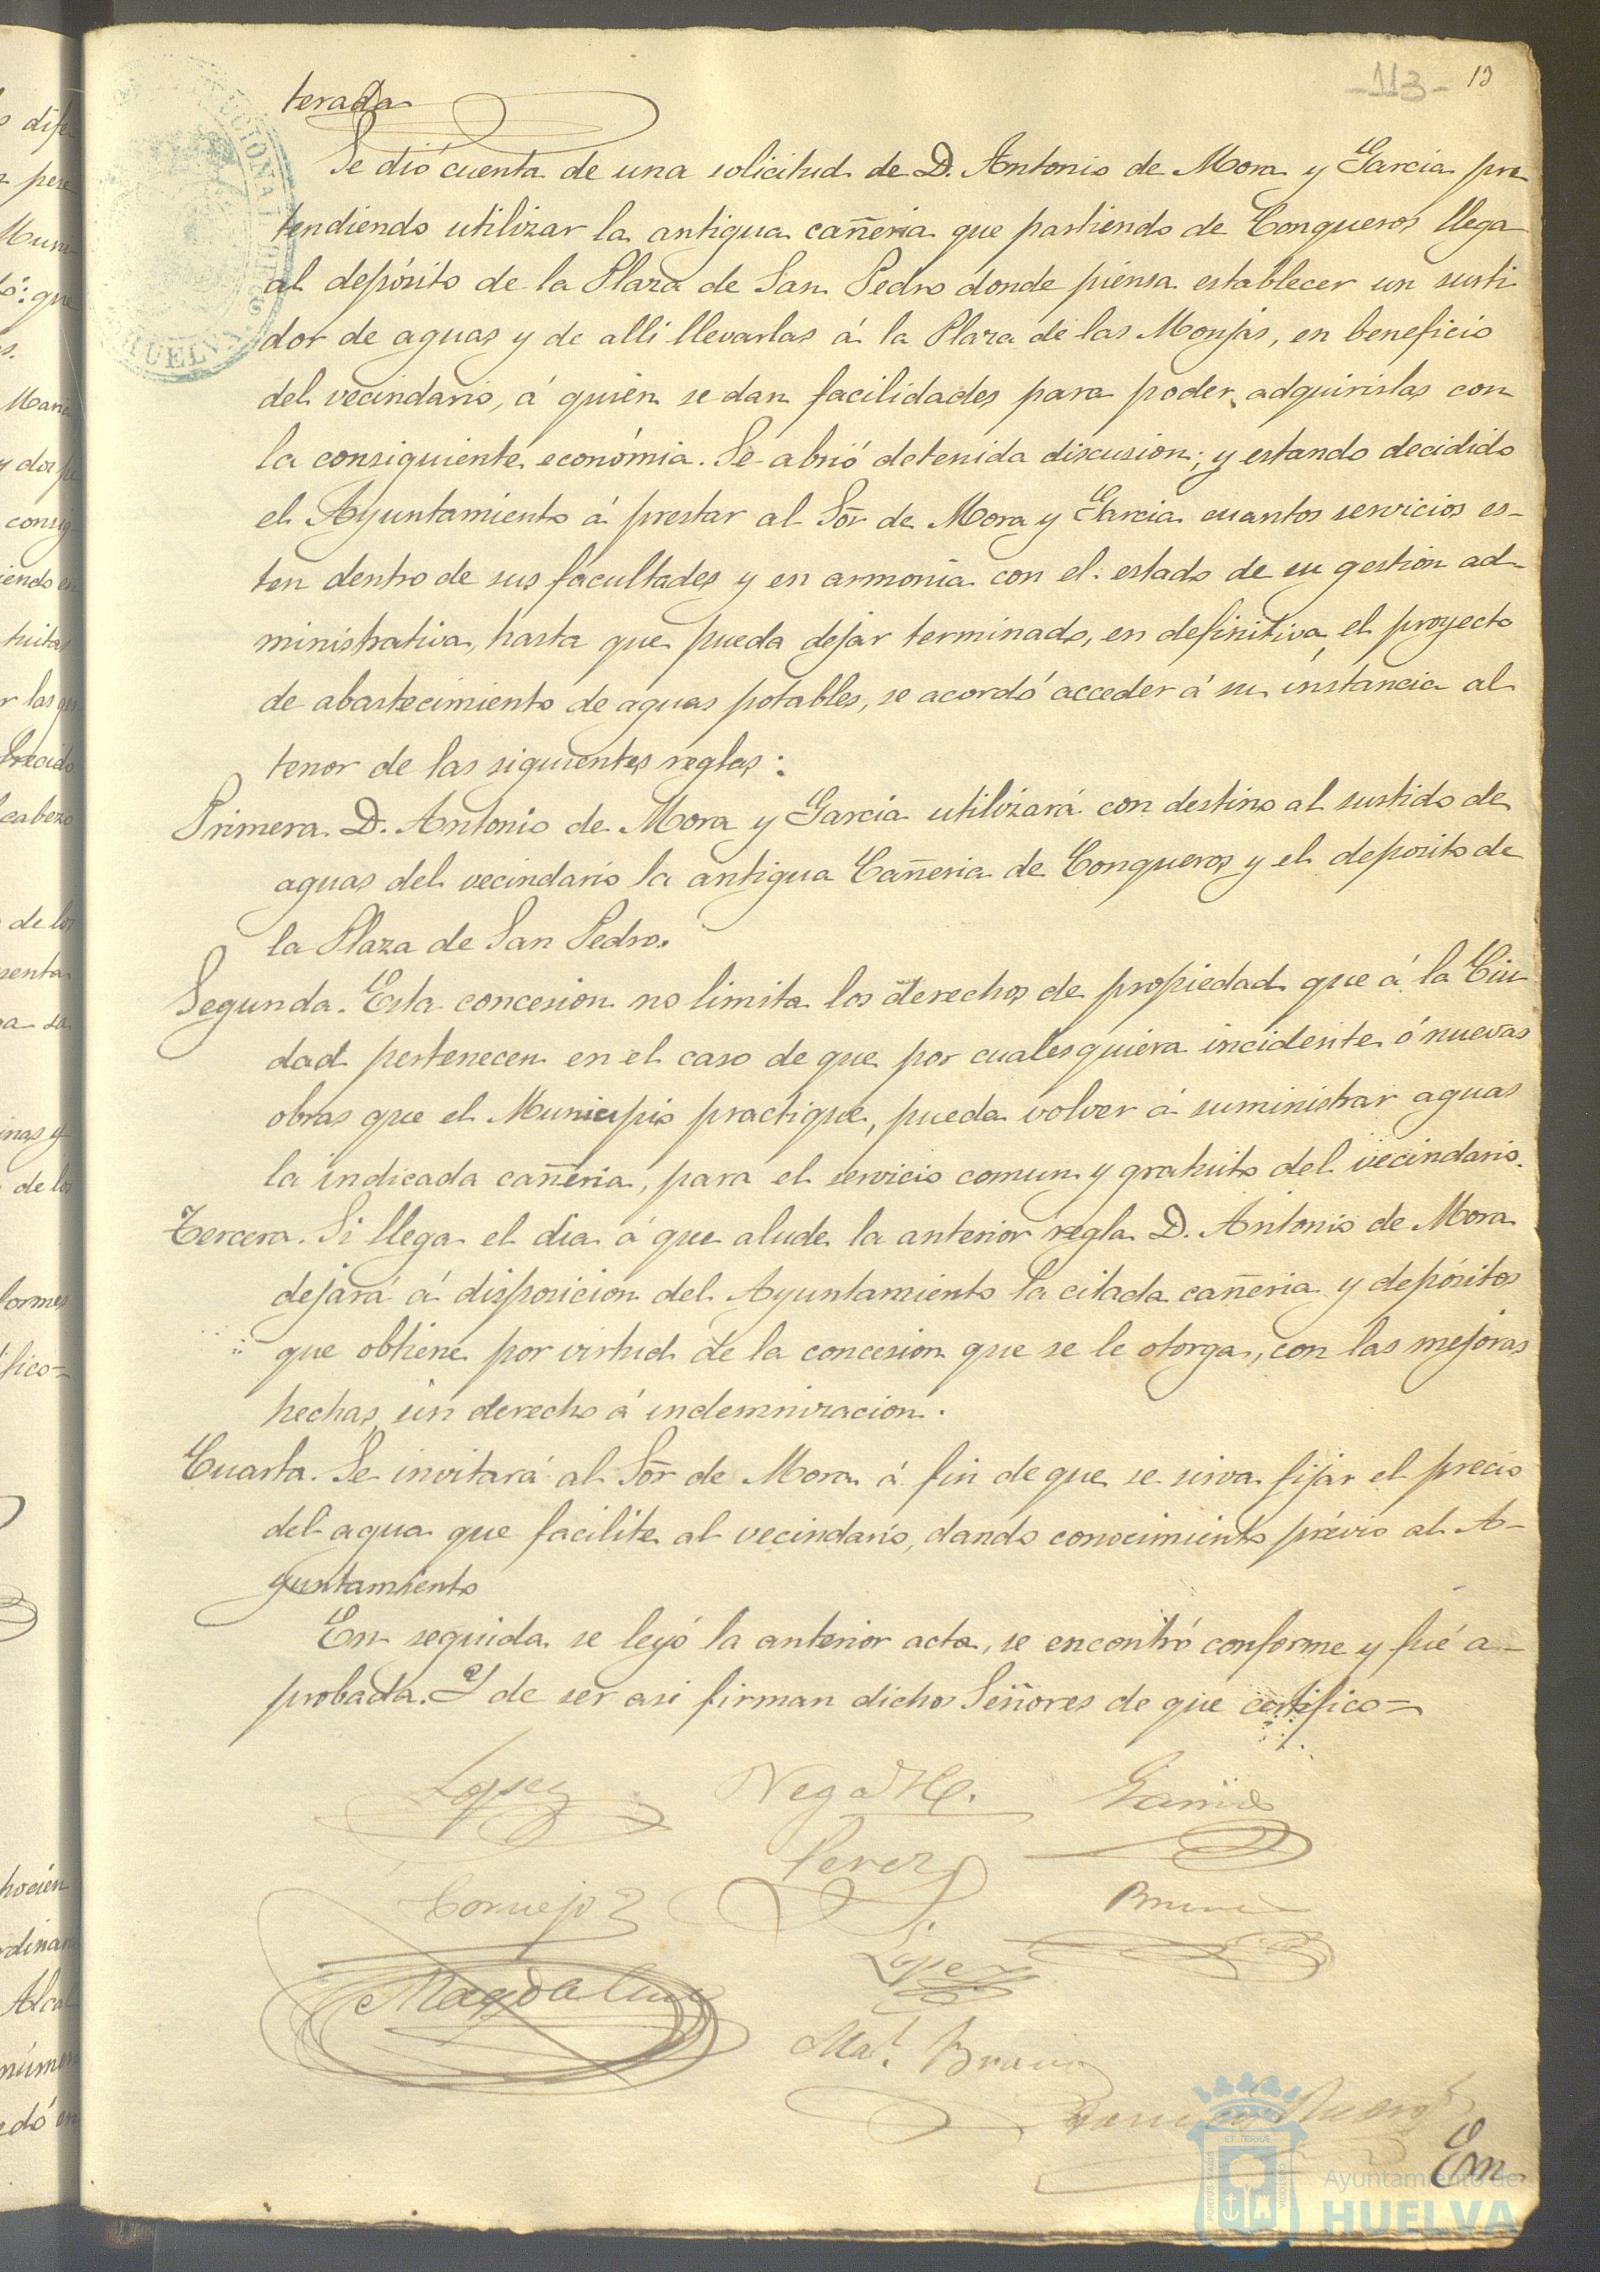 -113- 13
terada
Se dió cuenta de una solicitud de D. Antonio de Mora y Garcia pre
tendiendo utilizar la antigua cañeria que partiendo de Conqueros llega
al depósito de la Plaza de San Pedro donde piensa establecer un surti
dor de aguas y de alli llevarlas á la Plaza de las Monjas, en beneficio
del vecindario, á quién se dan facilidades para poder adquirirlas con
la consiguiente económia. Se abrió detenida discusion; y estando decidido
el Ayuntamiento á prestar al Sor de Mora y Garcia cuantos servicios es-
ten dentro de sus facultades y en armonia con el estado de su gestion ad-
ministrativa, hasta que pueda dejar terminado, en definitiva, el proyecto
de abastecimiento de aguas potables, se acordó acceder á su instancia al
tenor de las siguientes reglas:
Primera. D. Antonio de Mora y Garcia utilizará con destino al surtido de
aguas del vecindario la antigua Cañeria de Conqueros y el deposito de
la Plaza de San Pedro.
Segunda. Esta concesion no limita los derechos de propiedad que á la Ciu
dad pertenecen en el caso de que por cualesquiera incidente ó nuevas
obras que el Municipio practique, pueda volver á suministrar aguas
la indicada cañeria, para el servicio comun y gratuito del vecindario.
Tercera. Si llega el dia á que alude la anterior regla D. Antonio de Mora
dejará á disposicion del Ayuntamiento la citada cañeria y depósitos
que obtiene por virtud de la concesion que se le otorga, con las mejoras
hechas, sin derecho á indemnizacion.
Cuarta. Se invitará al Sor de Mora á fin de que se sirva fijar el precio
del agua que facilite al vecindario, dando conocimiento prévio al A-
yuntamiento
En seguida se leyó la anterior acta, se encontró conforme y fué a-
probada. Y de ser asi firman dichos Señores de que certifico=
Lopez Garcia
Perez
Cornejo
Lopez
Magdalena
Bravo
Em
Ayuntamiento de
HUELVA